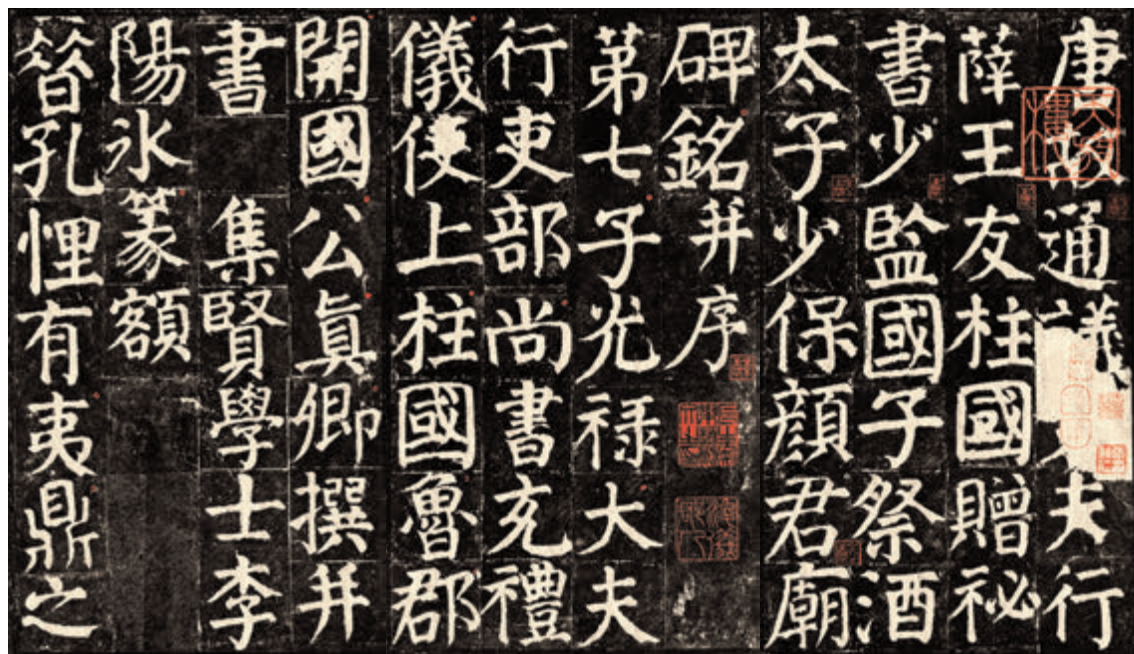 唐故通議夫行
薛王友柱國贈祕
書少監國子祭酒
太子少保顔君廟
碑銘并序
第七子光祿大夫
行吏部尚書充禮
儀使上柱國魯郡
開國公眞卿撰并
書 集賢學士李
陽冰篆額
晉孔悝有夷鼎之